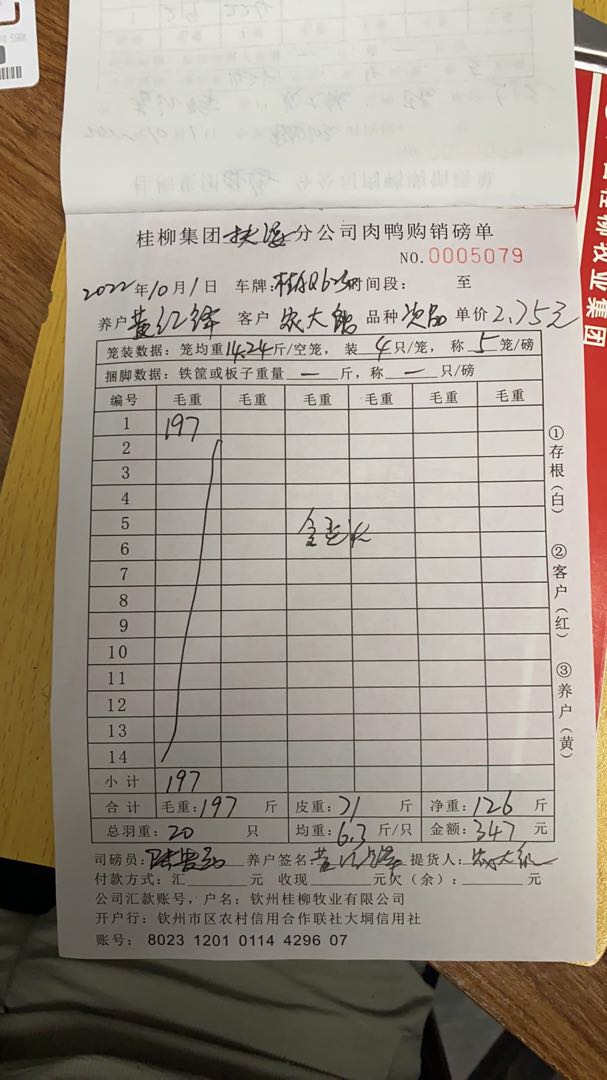 桂柳集团 分公司肉鸭购销磅单
NO.0005079
2022年10月1日 车牌: 时间段: 至
养户 黄红 客户 大 品种 次品 单价 2.75元
笼装数据：笼均重14.24斤/空笼，装 4 只/笼，称 5 笼/磅
捆脚数据：铁筐或板子重量 — 斤，称 — 只/磅
编号 毛重 毛重 毛重 毛重 毛重 毛重
1 197
2
3
4
5
6
7
8
9
10
11
12
13
14
小计 197
合计 毛重:197 斤 皮重:71 斤 净重:126 斤
总羽重:20 只 均重:6.3斤/只 金额:347元
司磅员: 养户签名: 黄 提货人:
付款方式:汇 元 收现 元欠（余）: 元
公司汇款账号，户名：钦州桂柳牧业有限公司
开户行：钦州市区农村信用合作联社大垌信用社
账号：8023 1201 0114 4296 07
①存根（白）
②客户（红）
③养户（黄）
桂柳农业集团